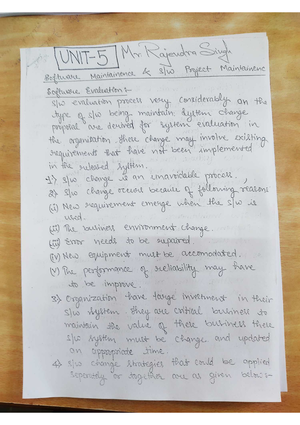 UNIT-5 Mr. Rajendra Singh
Software Maintainence & S/W Project Maintainenc
Software Evaluation:-
S/w evaluation process very considerably on the
type of s/w being maintain system change
proposal are derived for system evaluation in
the organitation these change may involve existing
requirements that have not been implemented
in the released system.
1) S/w change is an unavoidable process.
2) S/w change occurs because of following reasons
(i) New requirement emerge when the s/w is
used.
(ii) The business environment change.
(iii) Error needs to be repaired
(iv) New equipment must be accomodated.
(v) The performance of reliability may have
to be improve.
3) Organization have large investment in their
s/w system they are critical business to
maintain the value of these business these
s/w system must be change and updated
an appropriate time.
4) S/w change strategies that could be applied
seperately or together are as given below:-